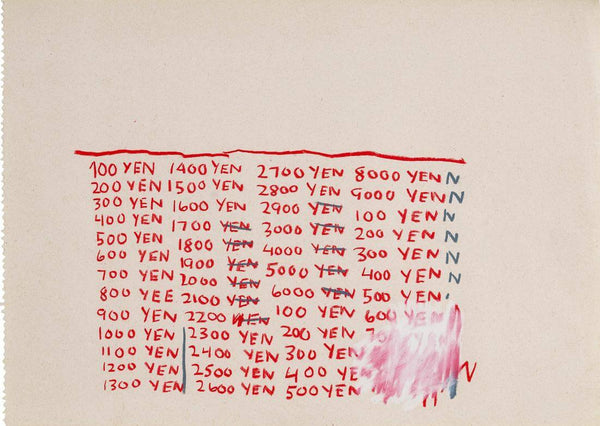 100 YEN 1400 YEN 2700 YEN 8000 YEN N
200 YEN 1500 YEN 2800 YEN 9000 YEN N
300 YEN 1600 YEN 2900 YEN 100 YEN N
400 YEN 1700 YEN 3000 YEN 200 YEN N
500 YEN 1800 YEN 4000 YEN 300 YEN N
600 YEN 1900 YEN 5000 YEN 400 YEN N
700 YEN 2000 YEN 6000 YEN 500 YEN
800 YEE 2100 YEN 100 YEN 600 YEN
900 YEN 2200 YEN 200 YEN
1000 YEN 2300 YEN 300 YEN
1100 YEN 2400 YEN 400 YEN N
1200 YEN 2500 YEN 500 YEN
1300 YEN 2600 YEN